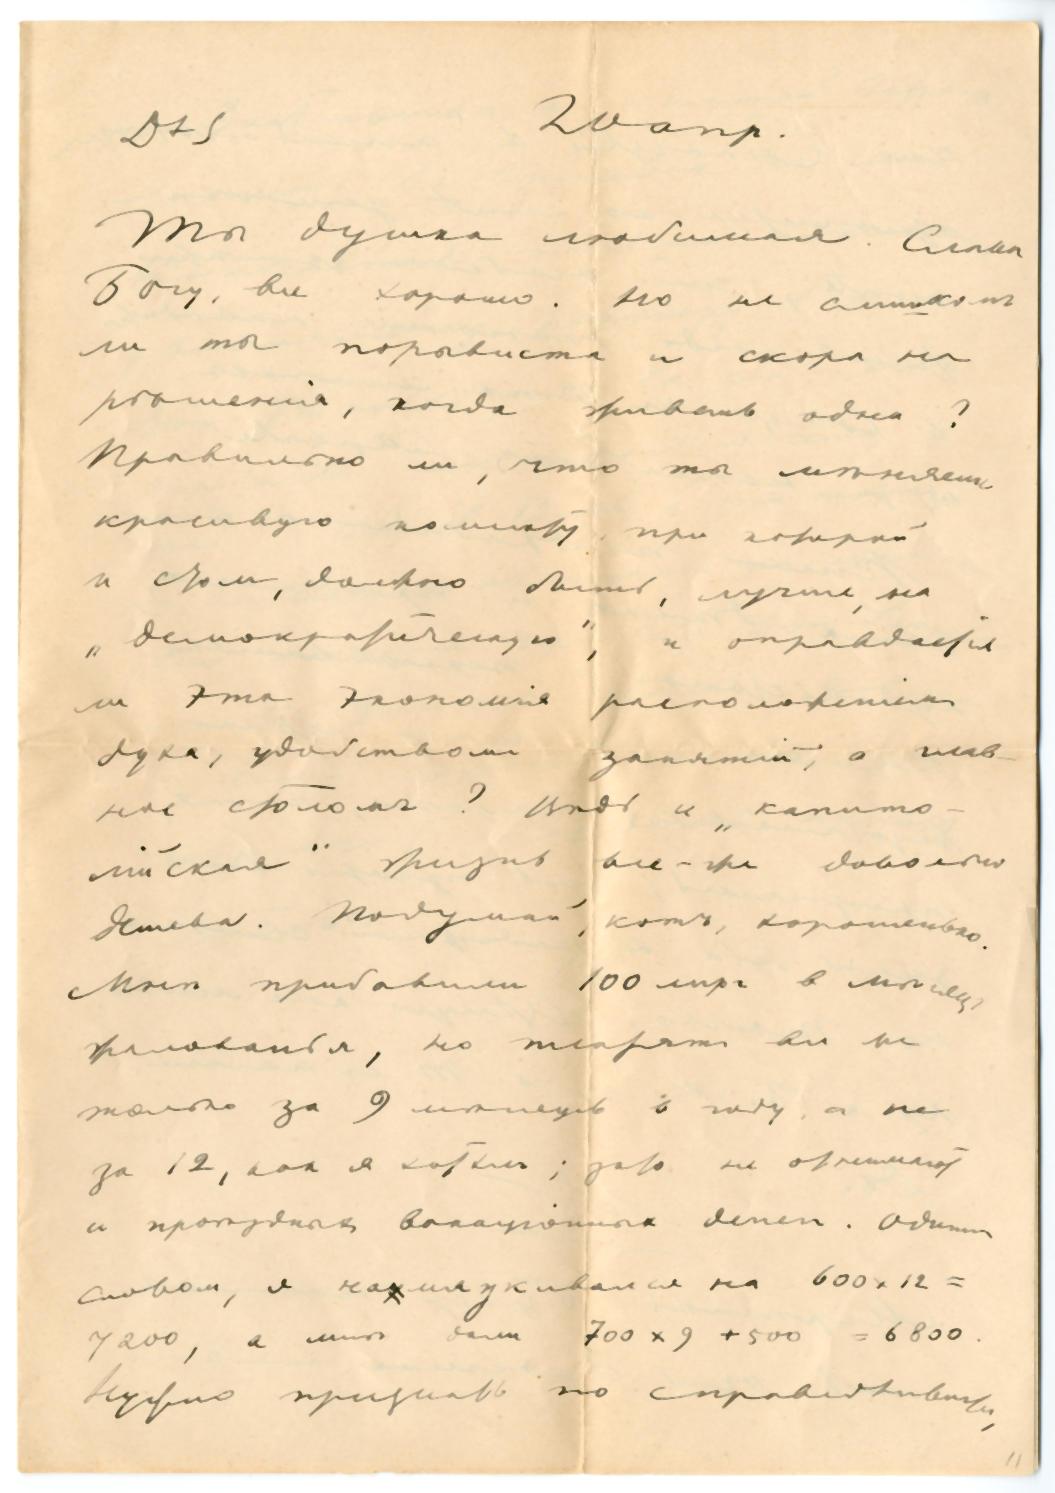 D+S 20 апр.
Ты душка любимая. Слава
Богу, все хорошо. Но не слишкомъ
ли ты порывиста и скора на
рѣшенія, когда живешь одна?
Правильно ли, что ты мѣняешь
красивую комнату, при которой
и столъ, должно быть, лучше, на
„демократическую“, и оправдается
ли эта экономія расположеніемъ
духа, удобствомъ занятій, а глав-
ное столомъ? Вѣдь и „капито-
лійская“ жизнь все-же довольно
дешева. Подумай, котъ, хорошенько.
Мнѣ прибавили 100 лиръ в мѣсяцъ
жалованья, но платятъ все не
только за 9 мѣсяцевъ в году, а не
за 12, как я хотѣлъ; зато не отнимают
и проѣздных вакаціонных денег. Одним
словом, я на улукивался на 600 x 12 =
7200, а мнѣ дали 700 x 9 + 500 = 6800.
Нужно признать по справедливости,
11